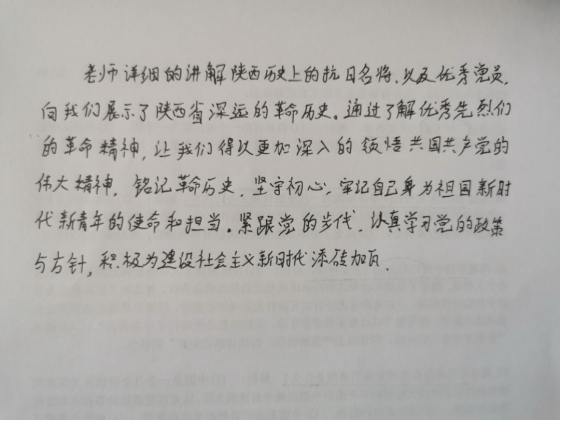 老师详细的讲解陕西历史上的抗日名将、以及优秀党员,
向我们展示了陕西省深远的革命历史。通过了解优秀先烈们
的革命精神,让我们得以更加深入的领悟共国共产党的
伟大精神,铭记革命历史,坚守初心,牢记自己身为祖国新时
代新青年的使命和担当。紧跟党的步代,认真学习党的政策
与方针,积极为建设社会主义新时代添砖加瓦.